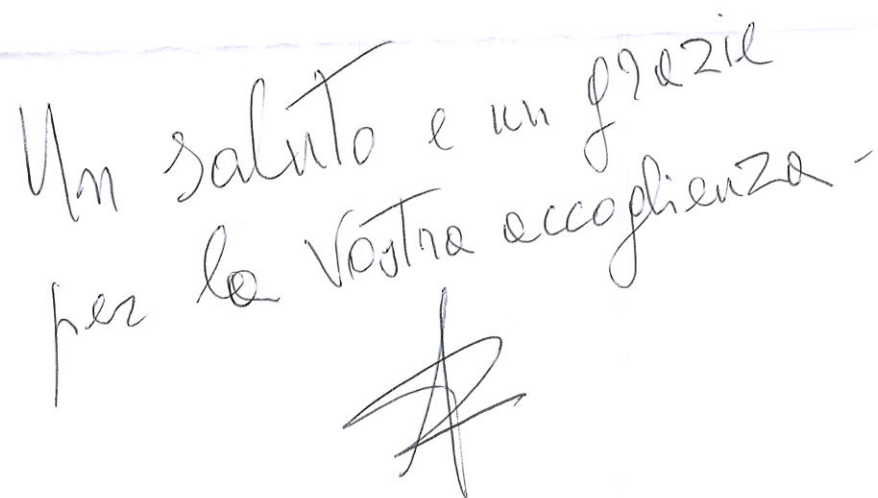 Un saluto e un grazie
per la Vostra accoglienza-